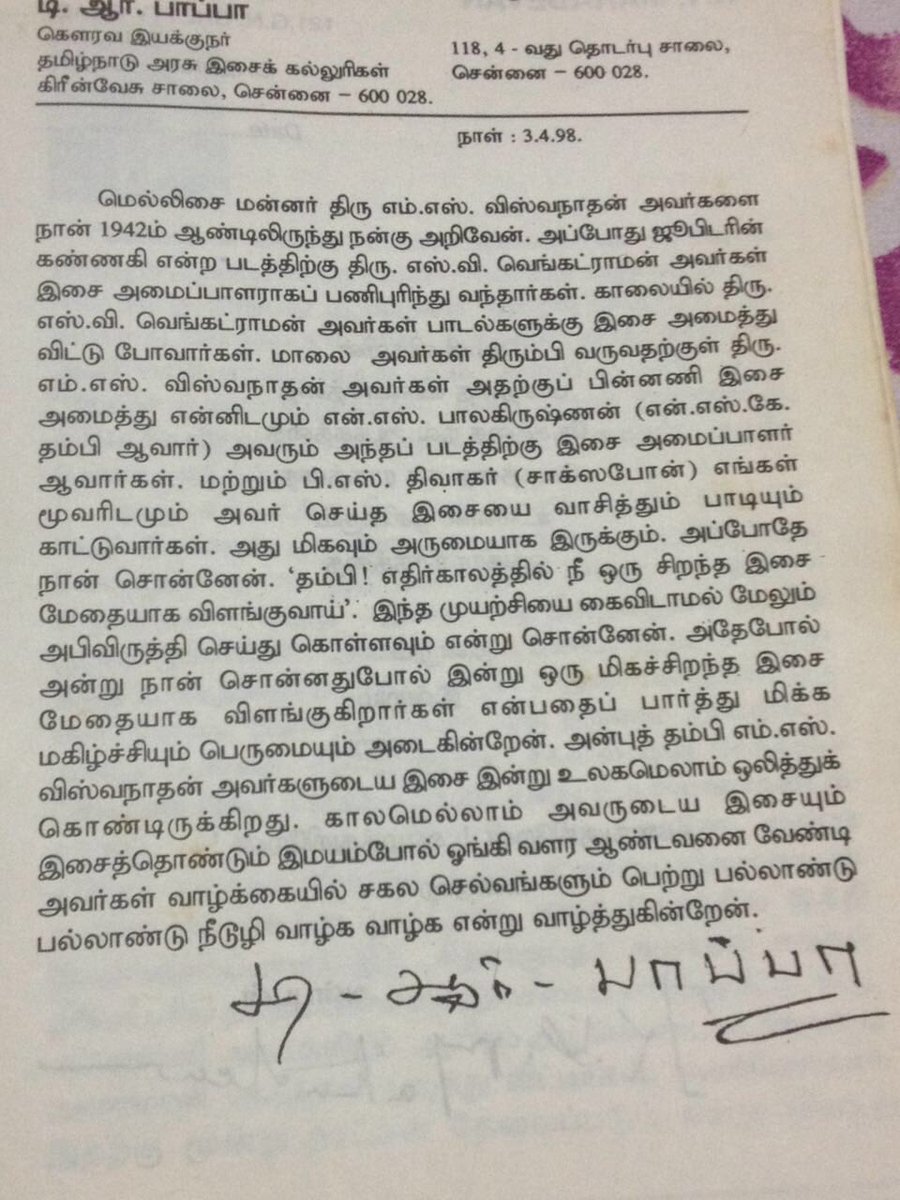 டி. ஆர். பாப்பா
கௌரவ இயக்குநர்
தமிழ்நாடு அரசு இசைக் கல்லூரிகள்
கிரீன்வேசு சாலை, சென்னை – 600 028.
118, 4 - வது தொடர்பு சாலை,
சென்னை – 600 028.
நாள் : 3.4.98.
மெல்லிசை மன்னர் திரு எம்.எஸ். விஸ்வநாதன் அவர்களை
நான் 1942ம் ஆண்டிலிருந்து நன்கு அறிவேன். அப்போது ஜூபிடரின்
கண்ணகி என்ற படத்திற்கு திரு. எஸ்.வி. வெங்கட்ராமன் அவர்கள்
இசை அமைப்பாளராகப் பணிபுரிந்து வந்தார்கள். காலையில் திரு.
எஸ்.வி. வெங்கட்ராமன் அவர்கள் பாடல்களுக்கு இசை அமைத்து
விட்டு போவார்கள். மாலை அவர்கள் திரும்பி வருவதற்குள் திரு.
எம்.எஸ். விஸ்வநாதன் அவர்கள் அதற்குப் பின்னணி இசை
அமைத்து என்னிடமும் என்.எஸ். பாலகிருஷ்ணன் (என்.எஸ்.கே.
தம்பி ஆவார்) அவரும் அந்தப் படத்திற்கு இசை அமைப்பாளர்
ஆவார்கள். மற்றும் பி.எஸ். திவாகர் (சாக்ஸபோன்) எங்கள்
மூவரிடமும் அவர் செய்த இசையை வாசித்தும் பாடியும்
காட்டுவார்கள். அது மிகவும் அருமையாக இருக்கும். அப்போதே
நான் சொன்னேன். ‘தம்பி! எதிர்காலத்தில் நீ ஒரு சிறந்த இசை
மேதையாக விளங்குவாய்’. இந்த முயற்சியை கைவிடாமல் மேலும்
அபிவிருத்தி செய்து கொள்ளவும் என்று சொன்னேன். அதேபோல்
அன்று நான் சொன்னதுபோல் இன்று ஒரு மிகச்சிறந்த இசை
மேதையாக விளங்குகிறார்கள் என்பதைப் பார்த்து மிக்க
மகிழ்ச்சியும் பெருமையும் அடைகின்றேன். அன்புத் தம்பி எம்.எஸ்.
விஸ்வநாதன் அவர்களுடைய இசை இன்று உலகமெலாம் ஒலித்துக்
கொண்டிருக்கிறது. காலமெல்லாம் அவருடைய இசையும்
இசைத்தொண்டும் இமயம்போல் ஓங்கி வளர ஆண்டவனை வேண்டி
அவர்கள் வாழ்க்கையில் சகல செல்வங்களும் பெற்று பல்லாண்டு
பல்லாண்டு நீடூழி வாழ்க வாழ்க என்று வாழ்த்துகின்றேன்.
டி - ஆர் - பாப்பா